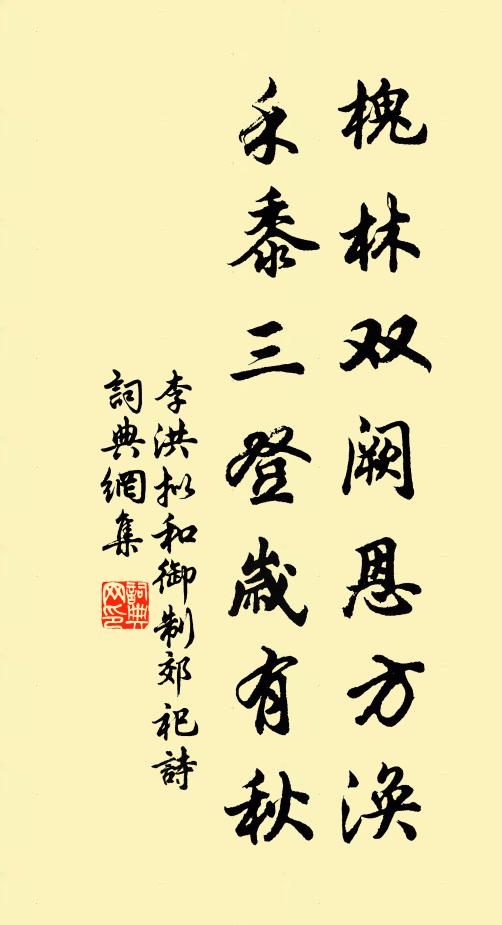 槐林双阙恩方涣
禾黍三登岁有秋
李洪拟和御制郊祀詩
詞典網集
詞典网印